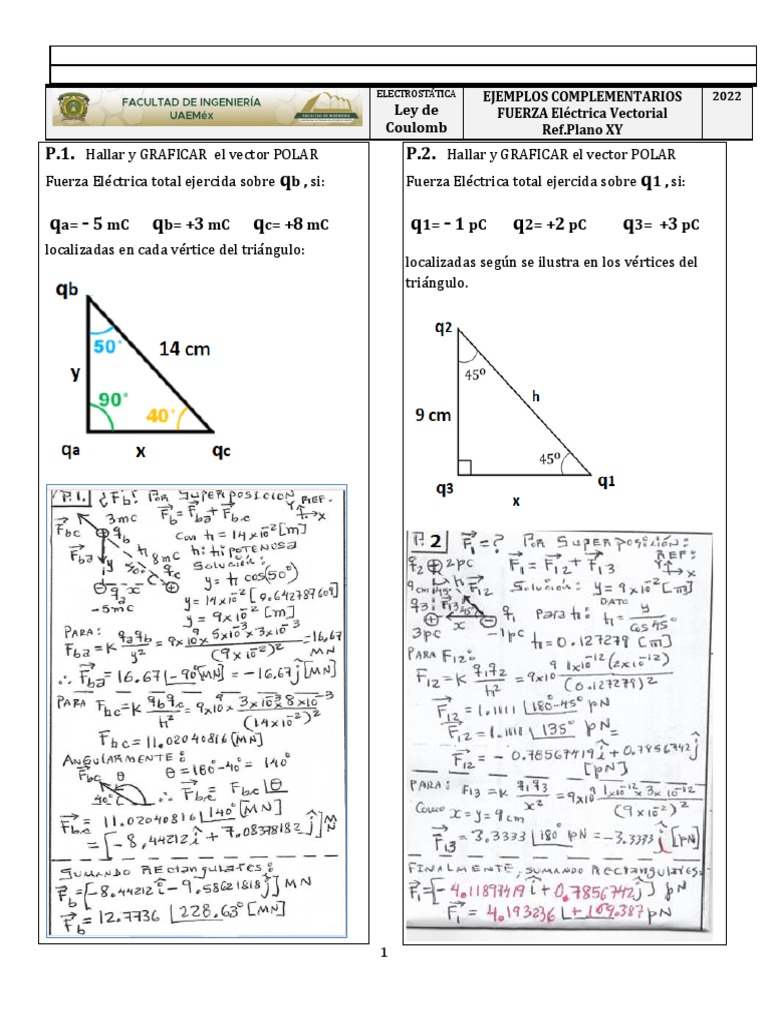 FACULTAD DE INGENIERÍA
UAEMéx
ELECTROSTÁTICA
Ley de
Coulomb
EJEMPLOS COMPLEMENTARIOS
FUERZA Eléctrica Vectorial
Ref.Plano XY
2022
P.1. Hallar y GRAFICAR el vector POLAR
Fuerza Eléctrica total ejercida sobre qb , si:
qa= - 5 mC qb= +3 mC qc= +8 mC
localizadas en cada vértice del triángulo:
qb
50°
14 cm
y
90°
40°
qa x qc
P.1. ¿Fb? POR SUPERPOSICION
REF.
Y
X
3mc
Fb = Fba + Fbc
Fbc
qb
con h = 14x10⁻² [m]
h: hipotenusa
Fba
y
h
8mc
Solución:
40°
qc
y = h cos(50°)
x
qa
y = 14x10⁻² [0.642787609]
-5mc
y = 9x10⁻² [m]
PARA:
Fba = K qaqb/y² = 9x10⁹ 5x10⁻³x3x10⁻³/(9x10⁻²)² = 16.67 MN
∴ Fba = 16.67 |-90° [MN] = -16.67 ĵ [MN]
PARA Fbc = K qbqc/h² = 9x10⁹ x 3x10⁻³x8x10⁻³/(14x10⁻²)²
Fbc = 11.02040816 [MN]
ANGULARMENTE:
Fbc θ θ = 180°-40° = 140°
40° ∴ Fbc = Fbc |θ
Fbc = 11.02040816 |140° [MN]
= [-8,44212 î + 7.08378182 ĵ] MN
SUMANDO RECTANGULARES:
Fb = [-8.44212 î - 9.58621818 ĵ] MN
Fb = 12.7736 |228.63° [MN]
P.2. Hallar y GRAFICAR el vector POLAR
Fuerza Eléctrica total ejercida sobre q1 , si:
q1= - 1 pC q2= +2 pC q3= +3 pC
localizadas según se ilustra en los vértices del
triángulo.
q2
45º
h
9 cm
45º
q1
q3
x
P. 2 F₁ = ? POR SUPERPOSICIÓN:
q2 2pc F₁ = F₁₂ + F₁₃
REF:
Y
X
9cm 45° h F₁₂ Solución: y = 9x10⁻² [m]
q3 F₁₃ 45° q1 Para h: DATO
h = y/cos 45°
x
3pc -1pc h = 0.127279 [m]
PARA F₁₂:
F₁₂ = K q1q2/h² = 9x10⁹ 1x10⁻¹²(2x10⁻¹²)/(0.127279)²
F₁₂ = 1.1111 |180°-45° pN
F₁₂ = 1.1111 |135° pN
F₁₂ = - 0.78567419 î + 0.7856742 ĵ
[pN]
PARA: F13 = K q1q3/x² = 9x10⁹ 1x10⁻¹² x 3x10⁻¹²/(9x10⁻²)²
Como x = y = 9 cm
F₁₃ = 3.3333 |180° pN = -3.3333 î [pN]
FINALMENTE, SUMANDO RECTANGULARES:
F₁ = [- 4.11897419 î + 0.7856742 ĵ] pN
F₁ = 4.193236 |+ 169.387 pN
1